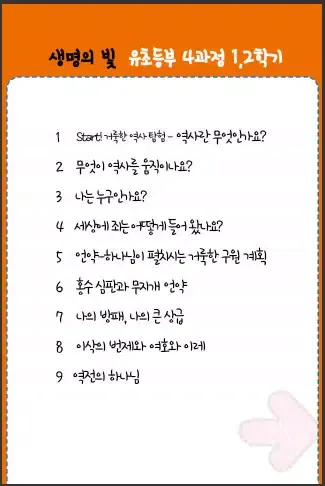 생명의 빛 유초등부 4과정 1,2학기
1 Start! 거룩한 역사 탐험 - 역사란 무엇인가요?
2 무엇이 역사를 움직이나요?
3 나는 누구인가요?
4 세상에 죄는 어떻게 들어 왔나요?
5 언약-하나님이 펼치시는 거룩한 구원 계획
6 홍수 심판과 무지개 언약
7 나의 방패, 나의 큰 상급
8 이삭의 번제와 여호와 이레
9 역전의 하나님